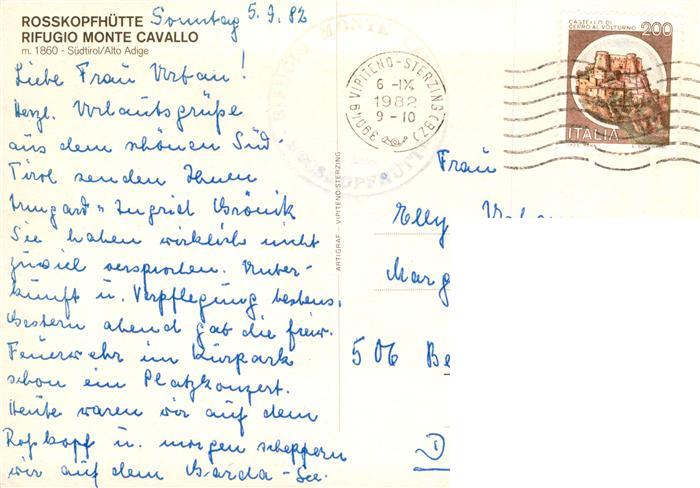 ROSSKOPFHÜTTE
RIFUGIO MONTE CAVALLO
m. 1860 - Südtirol/Alto Adige
Sonntag 5.9.82
Liebe Frau Urban!
Herzl. Urlaubsgrüße
aus dem schönen Süd-
Tirol senden Ihnen
Irmgard u. Ingrid
Sie haben wirklich nicht
zuviel versprochen. Unter-
kunft u. Verpflegung bestens.
Gestern abend gab die freiw.
Feuerwehr im Kurpark
schon ein Platzkonzert.
Heute waren wir auf dem
Roßkopf u. morgen scheppern
wir auf dem Garda-See.
ARTIGRAF - VIPITENO-STERZING
RIFUGIO MONTE
ROSSKOPFHÜTTE
39049 VIPITENO-STERZING (BZ)
6 -IX
1982
9 -10
CASTELLO DI
CERRO AL VOLTURNO
200
ITALIA
Frau
Elly Urban
Marg
506 Be
D